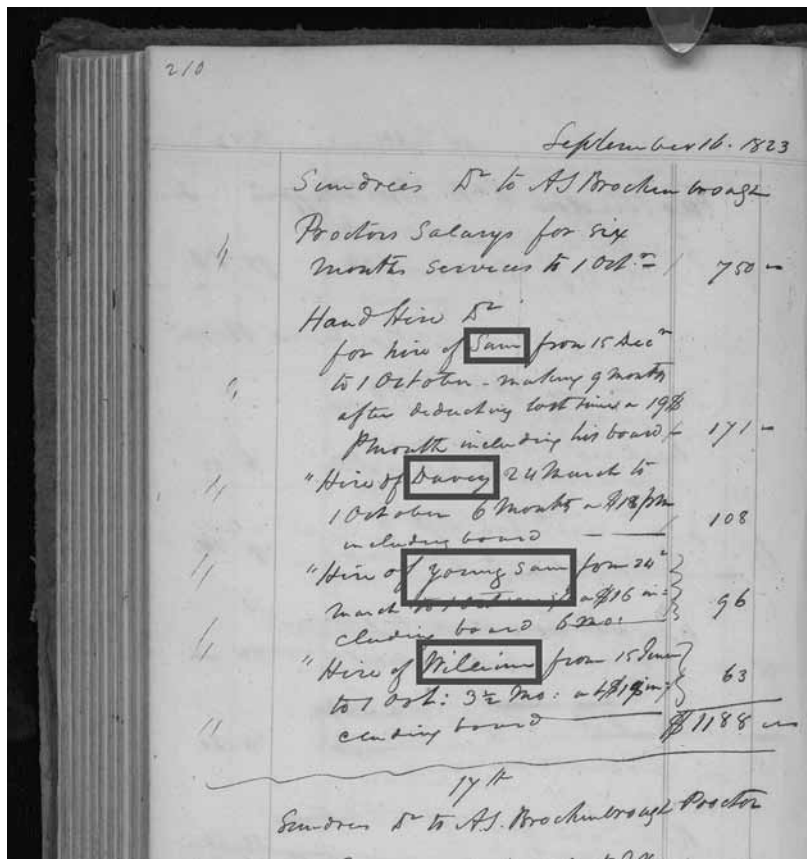 210
September 16. 1823
Sundries Dr to AS Brockenbrough
Proctors Salary for six
months services to 1 Octr 750 "
Hand Hire Dr
for hire of Sam from 15 Decr
to 1 October - making 9 months
after deducting lost time a 19$
P month including his board 171 "
"Hire of Davey 24 March to
1 October 6 months a $18 pm
including board 108
"Hire of young Sam from 24th
March to 1 a $16 in:
cluding board 6 mo: 96
"Hire of William from 15 June
to 1 Oct: 3½ mo: a $18 in: 63
cluding board $1188
17th
Sundries Dr to A.S. Brockenbrough Proctor